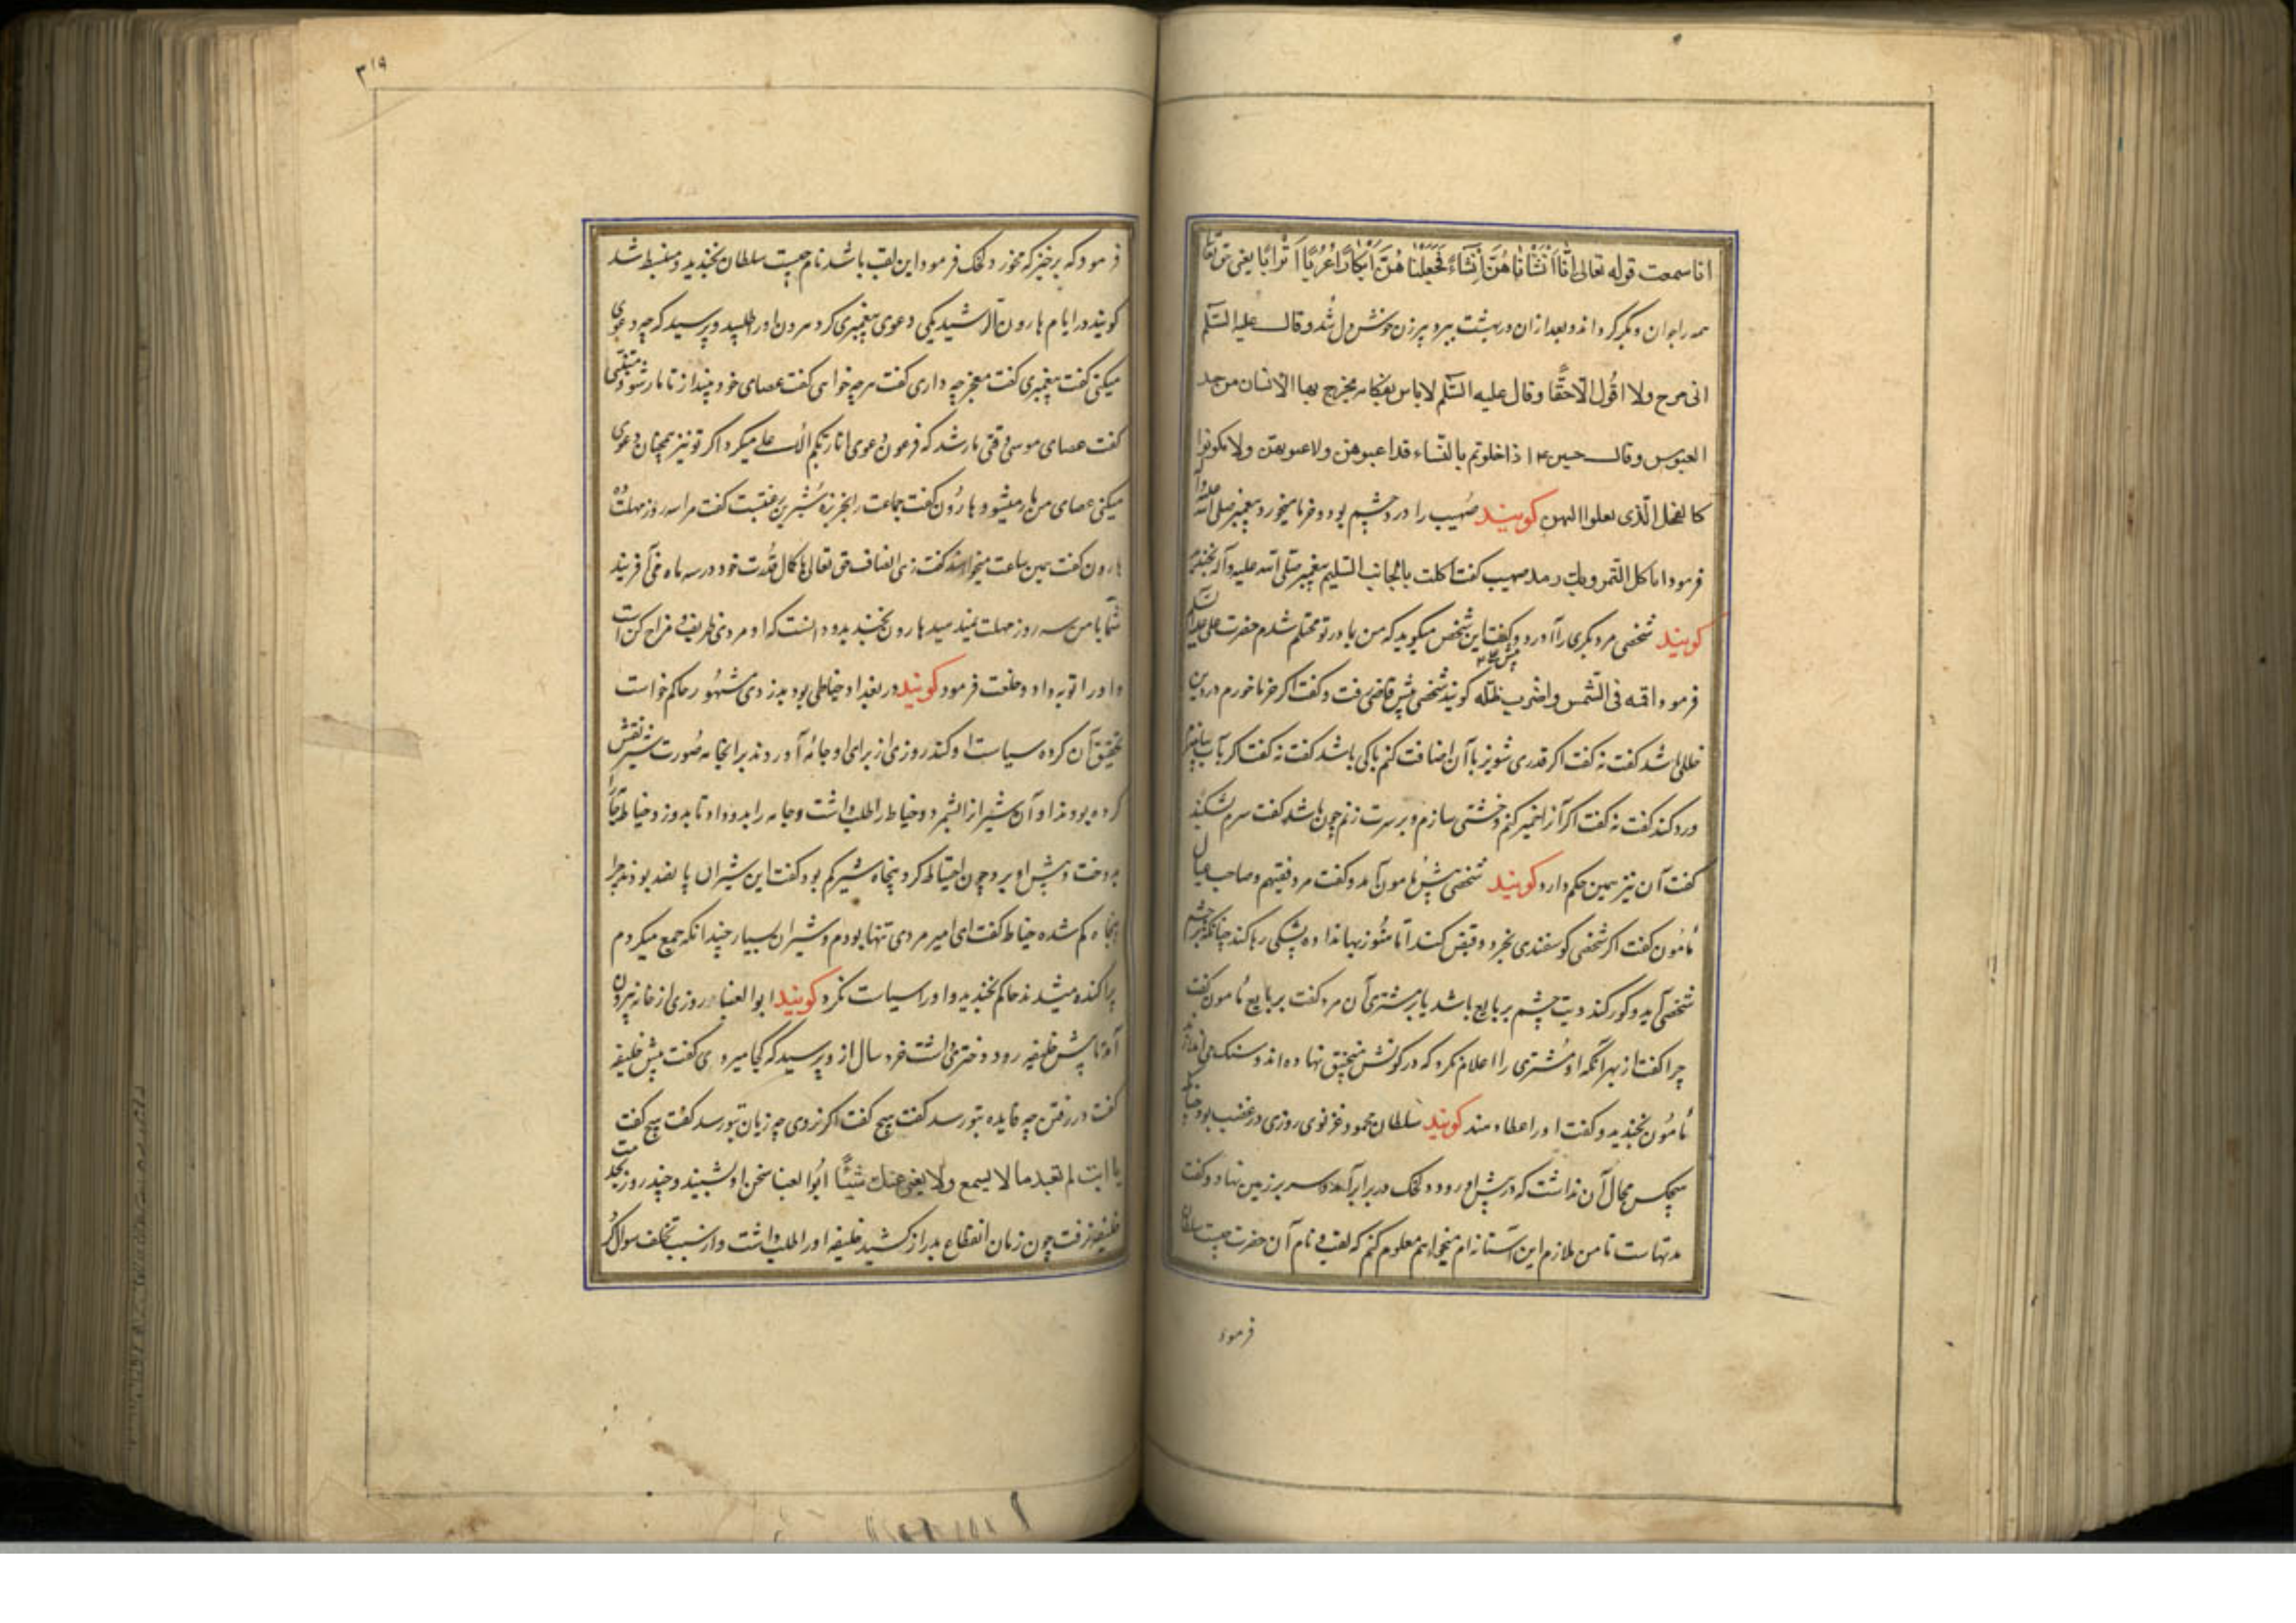 اما سمعت قوله تعالی اِنّا اَنشَأناهُنَّ اِنشَاءً فَجَعَلناهُنَّ اَبکاراً عُرُباً اَتراباً یعنی حق تعالی
همه را جوان و بکر گرداند و بعد از آن در بهشت برد پیرزن خوش دل شد و قال علیه السّلم
انی امزح ولا اقُول الّا حقًّا و قال علیه السّلم لا باس بفکاهة یخرج بها الانسان من حد
العبوس و قال اذا خلوتم بالنساء فداعبوهن ولا تکونوا
کالفحل الّذی کویند صُهیب را درد چشم بود و خرما میخورد پیغمبر صلی الله علیه و آله
فرمود اتاکل التّمر و بک رمد صهیب کفت اکلت بالجانب السّلیم پیغمبر صلّی الله علیه و آله بخندید
کویند شخصی مرد دیکری را آورد و کفت این شخص میکوید که من با مادر تو محتلم شدم حضرت علی علیه السّلم
فرمود اقمه فی الشّمس و اضرب ظلّه کویند شخصی پیش قاضی رفت و کفت اکر خرما خورم در دین
خللی باشد کفت نه کفت اکر قدری شونیز با آن اضافت کنم باکی باشد کفت نه کفت اکر آب بیامیزم
درد کند کفت نه کفت اکر آنرا خمیر کنم و خشتی سازم و بر سرت زنم چون باشد کفت سرم بشکند
کفت آن نیز همین حکم دارد کویند شخصی پیش مامون آمد و کفت مرد فقیهم و صاحب عیال
مامُون کفت اکر شخصی کوسفندی بخرد و قبض کند اما هنُوز بها نداده پشکی رها کند چنانکه بر چشم
شخصی آید و کور کند دیت چشم بر بایع باشد یا بر مشتری آن مرد کفت بر بایع مامون کفت
چرا کفت از بهر آنکه او مُشتری را اعلام نکرد که در کونش منجنیق نهاده اند و سنک می اندازد
مامُون بخندید و کفت او را عطا دهند کویند سلطان محمود غزنوی روزی در غضب بود چنانکه
هیچکس مجال آن نداشت که در پیش او رود دلخک در برابر آمد و سر بر زمین نهاد و کفت
مدتهاست تا من ملازم این آستانه ام میخواهم معلوم کنم که لقب و نام آن حضرت چیست سلطان
فرمود
۳۱۹
فرمود که برخیز که مخور دلخک فرمود این لقب باشد نام چیست سلطان بخندید و منبسط شد
کویند در ایام هارون الرّشید یکی دعوی پیغمبری کرد هرون او را طلبید و پرسید که چه دعوی
میکنی کفت پیغمبری کفت معجزه چه داری کفت هر چه خواهی کفت عصای خود بینداز تا مار شود متنبّی
کفت عصای موسی وقتی مار شد که فرعون دعوی انا ربّکم الاعلی میکرد اکر تو نیز همچنان دعوی
میکنی عصای من مار میشود هارُون کفت جماعت را بخربزه کفت مرا سه روز مهلت ده
هارون کفت همین ساعت میخواهند کفت زهی انصاف حق تعالی با کمال قُدرت خود در سه ماه می آفریند
شما با من سه روز مهلت نمیدهید هارون بخندید و دانست که او مردی ظریف و مزاح کن است
و او را توبه داد و خلعت فرمود کویند در بغداد خیاطی بود بدزدی مشهُور حاکم خواست
تحقیق آن کرده سیاست او کند روزی از برای او جامهٔ آوردند بر آنجا صُورت شیر نقش
کرده بودند او آن شیران را بشمرد و خیاط را طلب داشت و جامه را بدو داد تا بدوزد خیاط قبا
بدوخت و پیش او برد چون احتیاط کرد پنجاه شیر کم بود کفت این شیران پانصد بودند چرا
پنجاه کم شده خیاط کفت ای امیر مردی تنها بودم و شیران بسیار چندانکه جمع میکردم
پراکنده میشدند حاکم بخندید و او را سیاست نکرد کویند ابو العینا روزی از خانه بیرون
آمد تا پیش خلیفه رود دختری داشت خرد سال از و پرسید که کجا میروی کفت پیش خلیفه
کفت در رفتن چه فایده بتو رسد کفت هیچ کفت اکر نروی چه زیان بتو رسد کفت هیچ کفت
یا ابت لم تعبد ما لا یسمع ولا یغنی عنک شیئًا ابُو العینا سخن او بشنید و چند روز بخدمت
خلیفه نرفت چون زمان انقطاع بدراز کشید خلیفه او را طلب داشت و از سبب تخلف سوال کرد